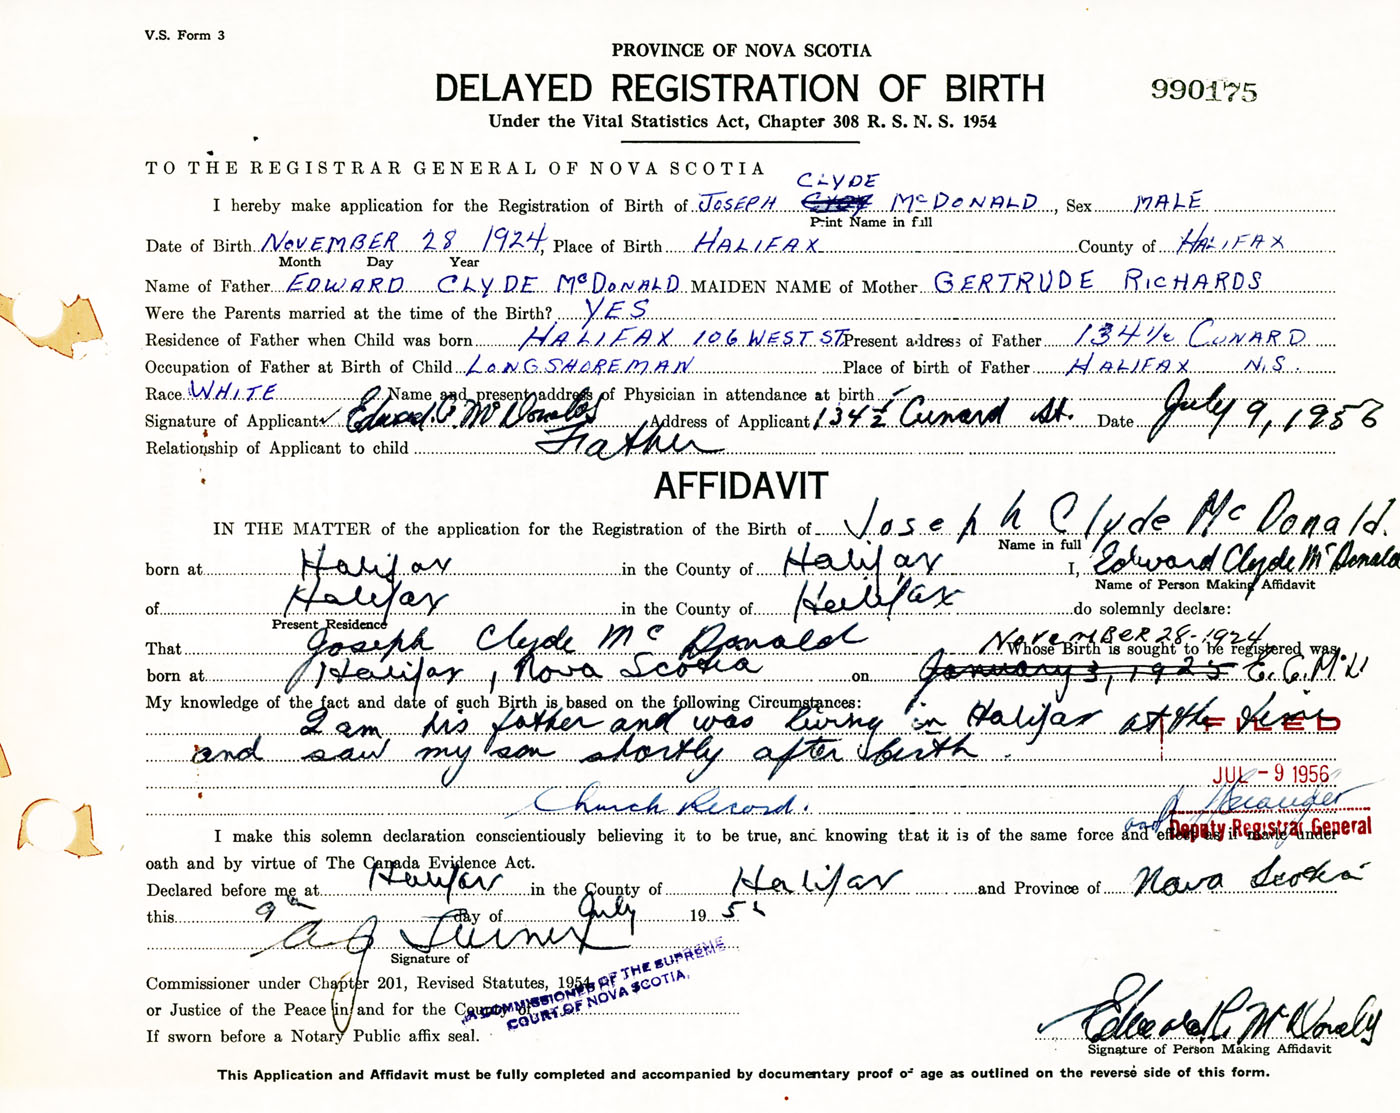 V.S. Form 3
PROVINCE OF NOVA SCOTIA
DELAYED REGISTRATION OF BIRTH
990175
Under the Vital Statistics Act, Chapter 308 R. S. N. S. 1954
TO THE REGISTRAR GENERAL OF NOVA SCOTIA
CLYDE
I hereby make application for the Registration of Birth of JOSEPH McDONALD, Sex MALE
Print Name in full
Date of Birth NOVEMBER 28 1924, Place of Birth HALIFAX County of HALIFAX
Month Day Year
Name of Father EDWARD CLYDE McDONALD MAIDEN NAME of Mother GERTRUDE RICHARDS
Were the Parents married at the time of the Birth? YES
Residence of Father when Child was born HALIFAX 106 WEST ST. Present address of Father 134 1/2 CUNARD
Occupation of Father at Birth of Child LONGSHOREMAN Place of birth of Father HALIFAX N.S.
Race WHITE Name and present address of Physician in attendance at birth
Signature of Applicant Edward C. McDonald Address of Applicant 134 1/2 Cunard St. Date July 9, 1956
Relationship of Applicant to child Father
AFFIDAVIT
IN THE MATTER of the application for the Registration of the Birth of Joseph Clyde McDonald.
Name in full
born at Halifax in the County of Halifax I, Edward Clyde McDonald
Name of Person Making Affidavit
of Halifax in the County of Halifax do solemnly declare:
Present Residence
NOVEMBER 28-1924
That Joseph Clyde McDonald Whose Birth is sought to be registered was
born at Halifax, Nova Scotia on January 3, 1925 E.C.McD
My knowledge of the fact and date of such Birth is based on the following Circumstances:
I am his father and was living in Halifax at the time
FILED
and saw my son shortly after birth.
JUL - 9 1956
Church Record.
Deputy Registrar General
I make this solemn declaration conscientiously believing it to be true, and knowing that it is of the same force and effect as if made under
oath and by virtue of The Canada Evidence Act.
Declared before me at Halifax in the County of Halifax and Province of Nova Scotia
this 9th day of July 1956
A J Turner
Signature of
Commissioner under Chapter 201, Revised Statutes, 1954
or Justice of the Peace in and for the County of
A COMMISSIONER OF THE SUPREME
COURT OF NOVA SCOTIA.
If sworn before a Notary Public affix seal.
Edward C. McDonald
Signature of Person Making Affidavit
This Application and Affidavit must be fully completed and accompanied by documentary proof of age as outlined on the reverse side of this form.